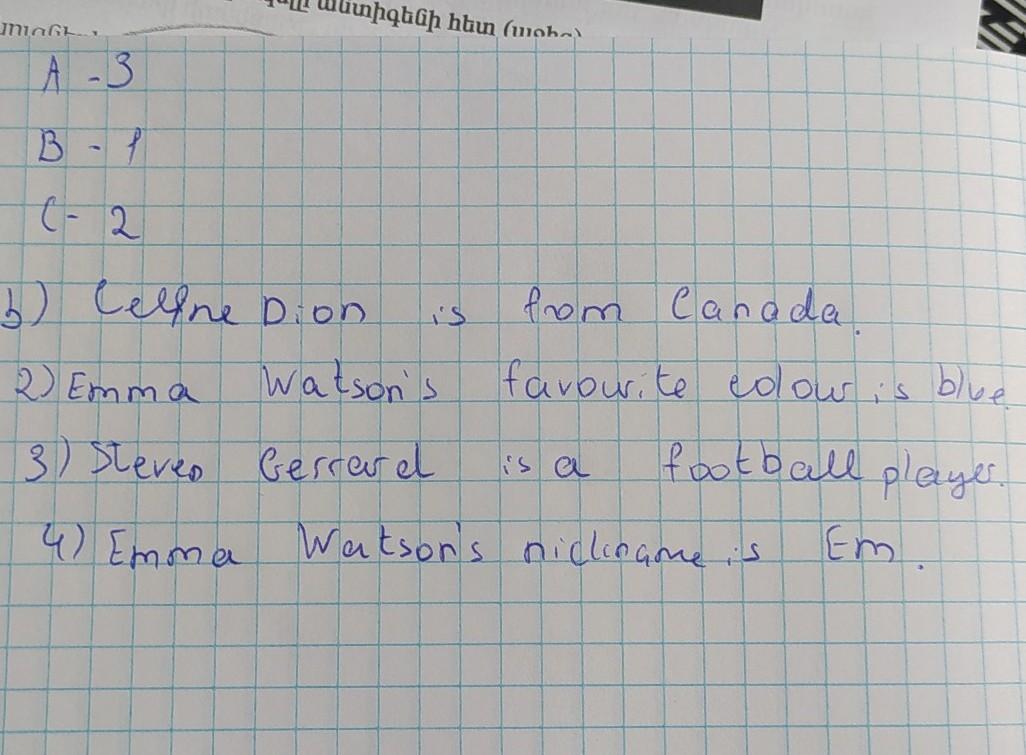 անտիգենի հետ
A - 3
B - 1
C - 2
b) Celine Dion is from Canada.
2) Emma Watson's favourite colour is blue.
3) Steven Gerrard is a football player.
4) Emma Watson's nickname is Em.